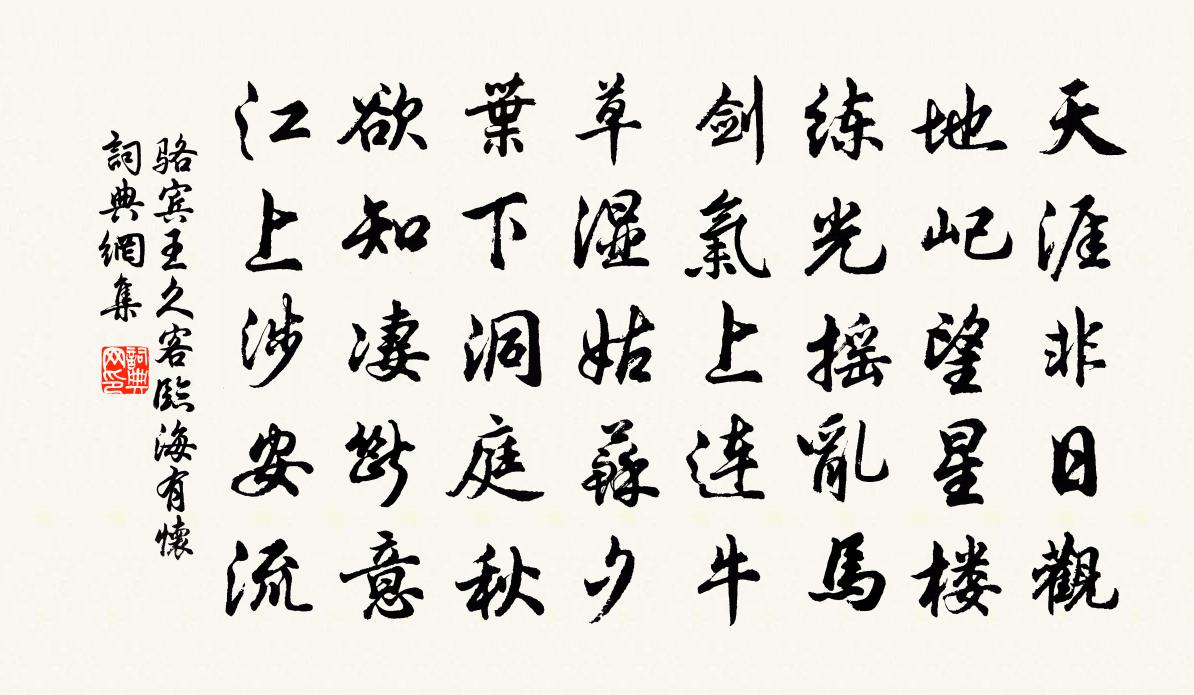 天涯非日觀
地屺望星楼
练光摇亂馬
剑氣上連牛
草濕姑蘇夕
葉下洞庭秋
欲知凄断意
江上涉安流
骆宾王久客臨海有懷
詞典網集
詞典网印